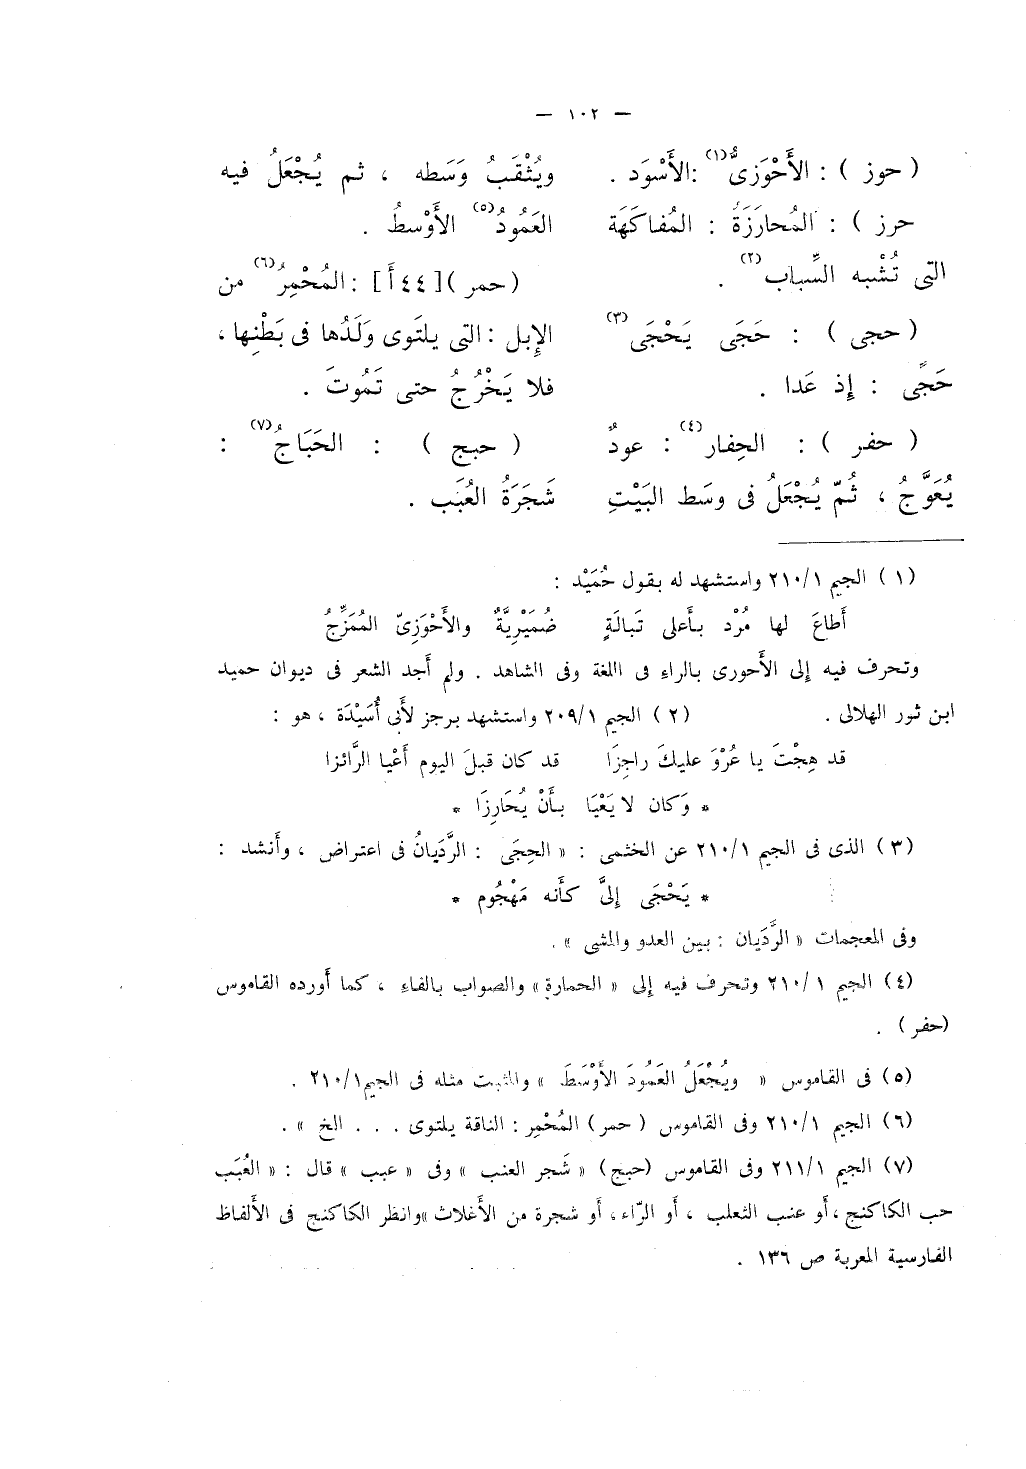 — ١٠٢ —
( حوز ) : الأَحْوَزِىُّ(١) :الأَسْوَد .
حرز ) : المُحارَزَةُ : المُفاكَهَة
التى تُشْبه السِّباب(٢) .
( حجى ) : حَجَى يَحْجَى(٣)
حَجًى : إذ عَدا .
( حفر ) : الحِفار(٤) : عودٌ
يُعَوَّجُ ، ثُمّ يُجْعَلُ فى وسَط البَيْتِ
ويُثْقَبُ وَسَطه ، ثم يُجْعَلُ فيه
العَمُودُ(٥) الأَوْسطُ .
( حمر )[ ٤٤ أ] : المُحْمِرُ(٦) من
الإِبل : التى يلتَوى وَلَدُها فى بَطْنِها ،
فلا يَخْرُجُ حتى تَمُوتَ .
( حبج ) : الحَبَاجُ(٧) :
شَجَرَةُ العُبَب .
( ١ ) الجيم ٢١٠/١ واستشهد له بقول حُمَيْد :
أَطاعَ لها مُرْد بأَعلى تَبالَةٍ ضُمَيْرِيَّةٌ والأَحْوَزِىّ المُمَزِّجُ
وتحرف فيه إلى الأَحورى بالراءِ فى اللغة وفى الشاهد . ولم أَجد الشعر فى ديوان حميد
ابن ثور الهلالى .
( ٢ ) الجيم ٢٠٩/١ واستشهد برجز لأَبى أُسَيْدَة ، هو :
قد هِجْتَ يا عُرْوَ عليكَ راجِزَا قد كان قبلَ اليوم أَعْيا الرَّائزا
* وَكان لا يَعْيَا بأَنْ يُحَارِزَا *
( ٣ ) الذى فى الجيم ٢١٠/١ عن الخثمى : « الحِجَى : الرَّدَيانُ فى اعتراض ، وأَنشد :
* يَحْجَى إلىَّ كأَنه مَهْجُوم *
وفى المعجمات « الرَّدَيان : بين العدو والمشى » .
(٤) الجيم ٢١٠/١ وتحرف فيه إلى « الحمارة » والصواب بالفاءِ ، كما أَورده القاموس
(حفر) .
(٥) فى القاموس « ويُجْعَلُ العَمُودَ الأَوْسَطَ » والمثبت مثله فى الجيم٢١٠/١ .
(٦) الجيم ٢١٠/١ وفى القاموس ( حمر) المُحْمِر : الناقة يلتوى . . . الخ » .
(٧) الجيم ٢١١/١ وفى القاموس (حبج) « شَجر العنب » وفى « عبب » قال : « العُبَب
حب الكاكنج ، أَو عنب الثعلب ، أَو الرّاء، أَو شجرة من الأَغلاث »وانظر الكاكنج فى الأَلفاظ
الفارسية المعربة ص ١٣٦ .